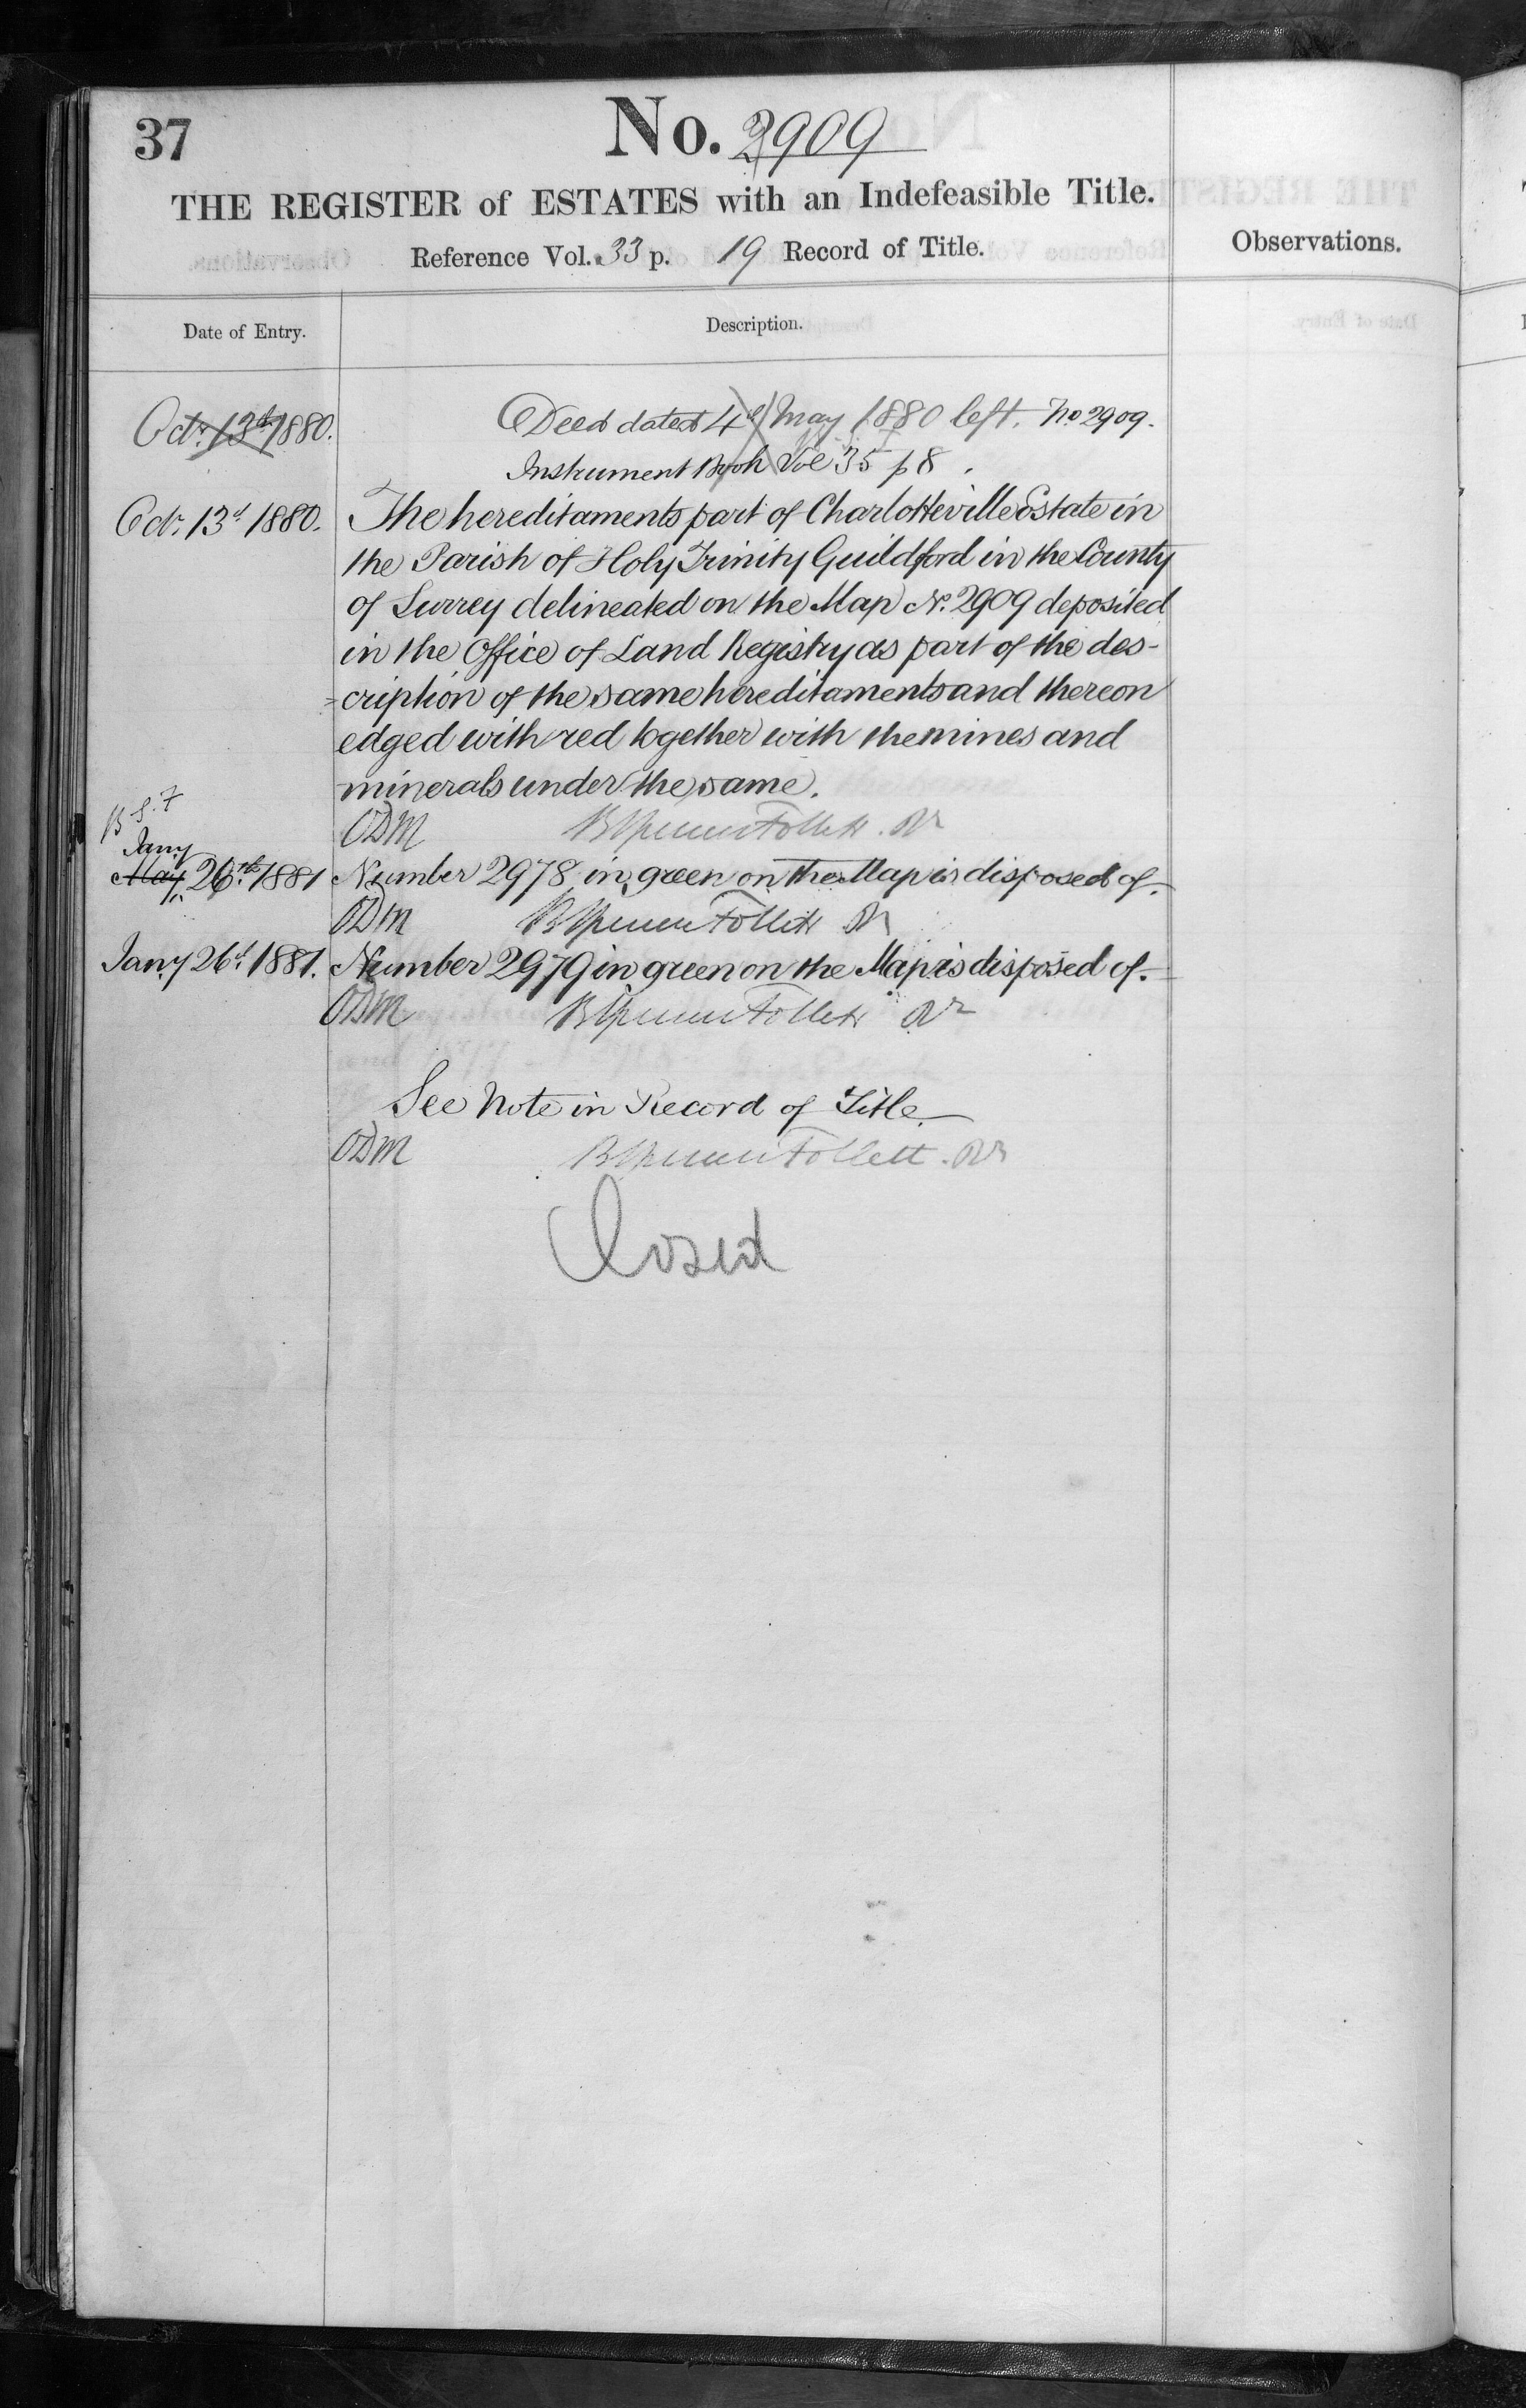 37
No. 2909
THE REGISTER of ESTATES with an Indefeasible Title.
Reference Vol. 33 p. 19 Record of Title.
Observations.
Date of Entry.
Description.
Octr. 13th 1880.
Deed dated 4th May 1880 left. No 2909.
Instrument Book Vol 35 p 8.
Octr. 13th 1880.
The hereditaments part of Charlotteville Estate in
the Parish of Holy Trinity Guildford in the County
of Surrey delineated on the Map No. 2909 deposited
in the Office of Land Registry as part of the des-
=cription of the same hereditaments and thereon
edged with red together with the mines and
minerals under the same.
B S. F
ODM B Spencer Follett. Rr
Jany
May 26th 1881 Number 2978 in green on the Map is disposed of.
ODM B Spencer Follett Rr
Jany 26th 1881. Number 2979 in green on the Map is disposed of.
ODM B Spencer Follett Rr
See Note in Record of Title
ODM B Spencer Follett. Rr
Closed